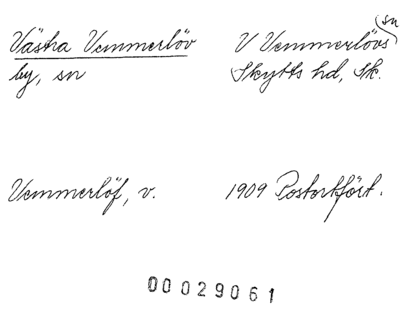 Västra Vemmerlöv V Vemmerlövs sn
by, sn Skytts hd, Sk.
Vemmerlöf, v. 1909 Postortfört.
00029061